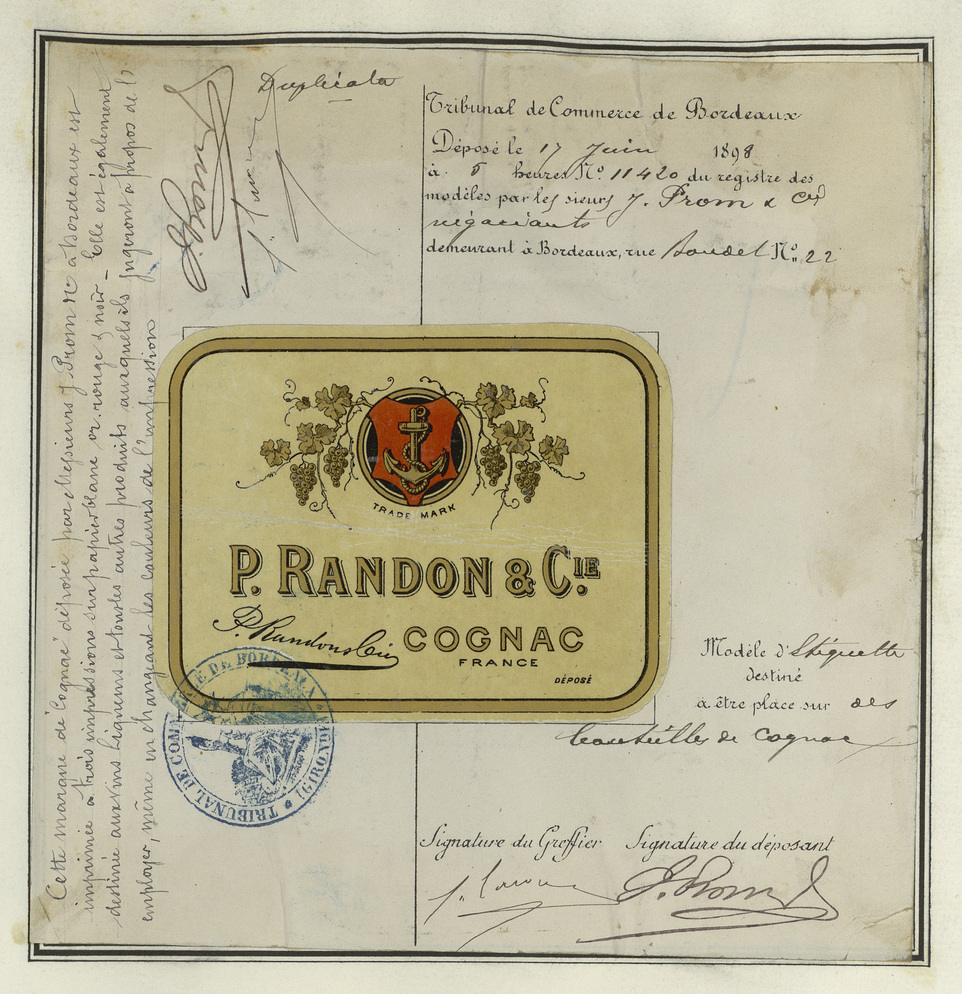 Duplicata
J. Prom
Tribunal de Commerce de Bordeaux
Déposé le 17 Juin 1898
à 5 heures No. 11420 du régistre des
modèles par les sieurs J. Prom & Cie
négociants
demeurant à Bordeaux, rue No. 22
Cette marque de Cognac déposée par Messieurs J Prom & Cie à Bordeaux est
imprimée à trois impressions sur papier blanc or, rouge & noir _ Elle est également
destinée aux vins liqueurs et tous les autres produits auxquels ils jugeront à propos de l'
employer, même en changeant les couleurs de l'impression
TRADE MARK
P. RANDON & CIE.
P. Randon & Cie COGNAC
FRANCE
DÉPOSÉ
TRIBUNAL DE COMMERCE DE BORDEAUX (GIRONDE)
Modèle d'Etiquette
destiné
à être place sur des
bouteilles de Cognac
Signature du Greffier Signature du déposant
J. Prom